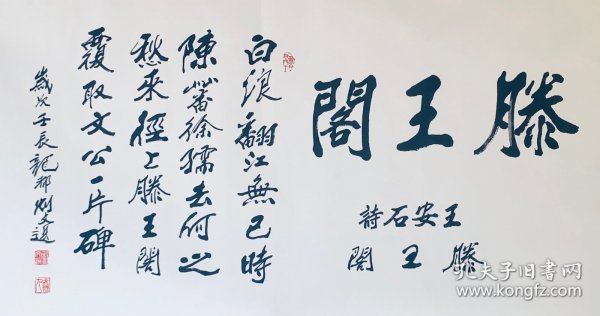 滕王閣
王安石詩
滕王閣
白浪翻江無已時
陳蕃徐孺去何之
愁來徑上滕王閣
覆取文公一片碑
歲次壬辰
孔夫子旧书网
www.kongfz.com